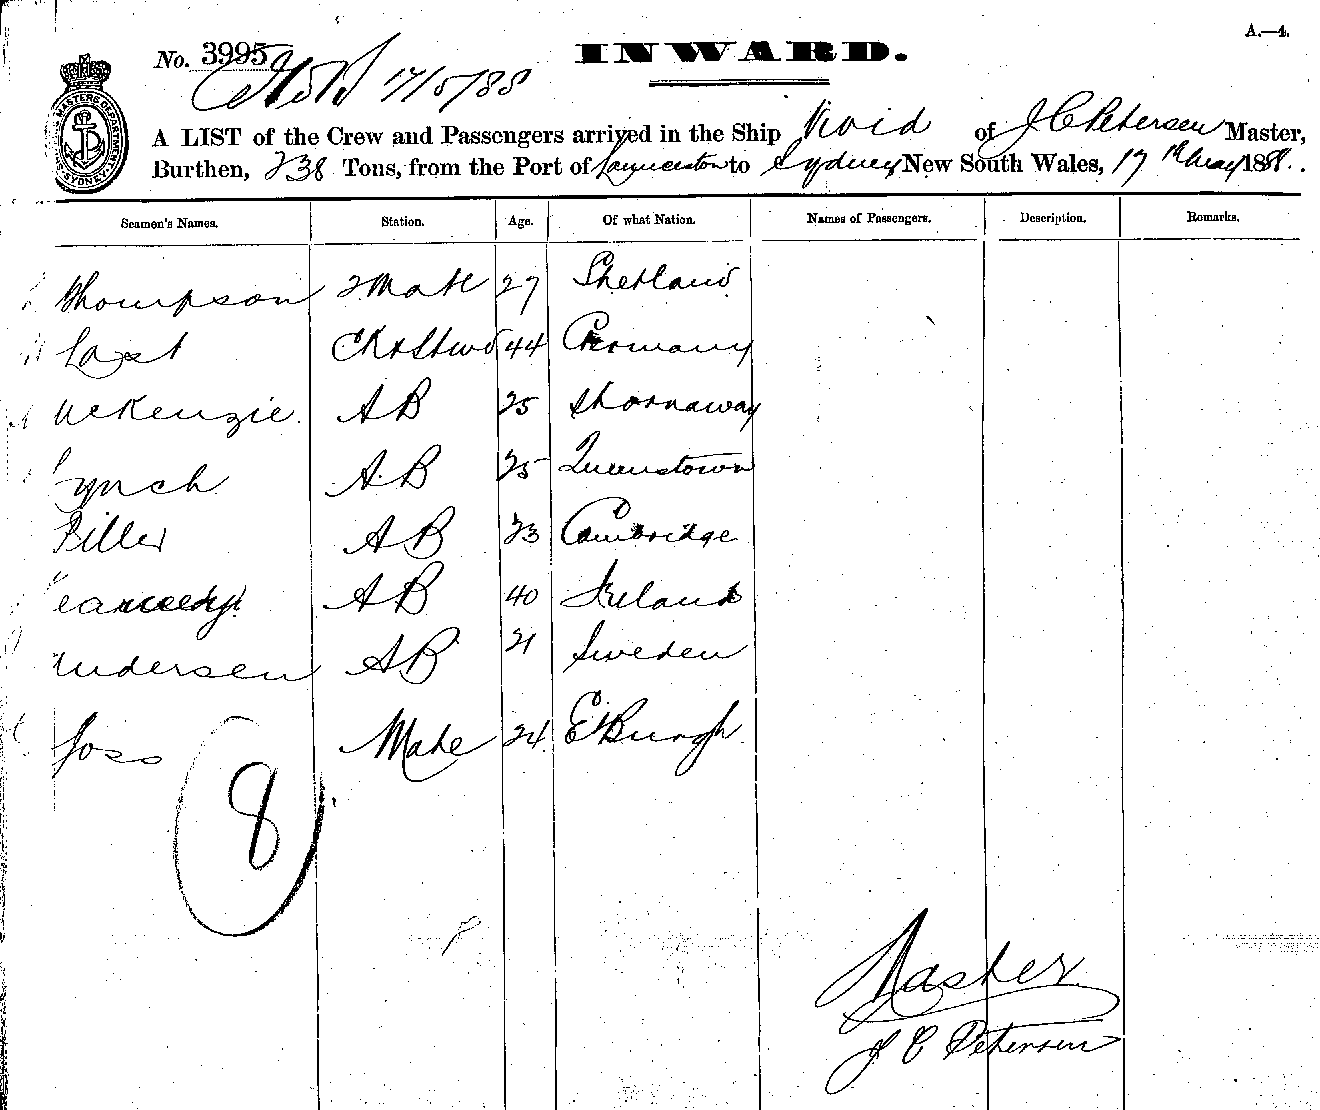 A.—4.
No. 3995 INWARD.
17/5/88
A LIST of the Crew and Passengers arrived in the Ship Vivid of J C Petersen Master,
Burthen, 238 Tons, from the Port of Launceston to Sydney New South Wales, 17th May 1888.
MASTERS DEPARTMENT SYDNEY
Seamen's Names. Station. Age. Of what Nation. Names of Passengers. Description. Remarks.
Thompson 2 Mate 27 Shetland
Last Ck & Stwd 44 Germany
McKenzie A B 25 Stornaway
Lynch A B 25 Queenstown
Piller A B 23 Cambridge
A B 40 Ireland
Andersen A B 21 Sweden
Joss Mate 24 E'Burgh
8
Master
J C Petersen